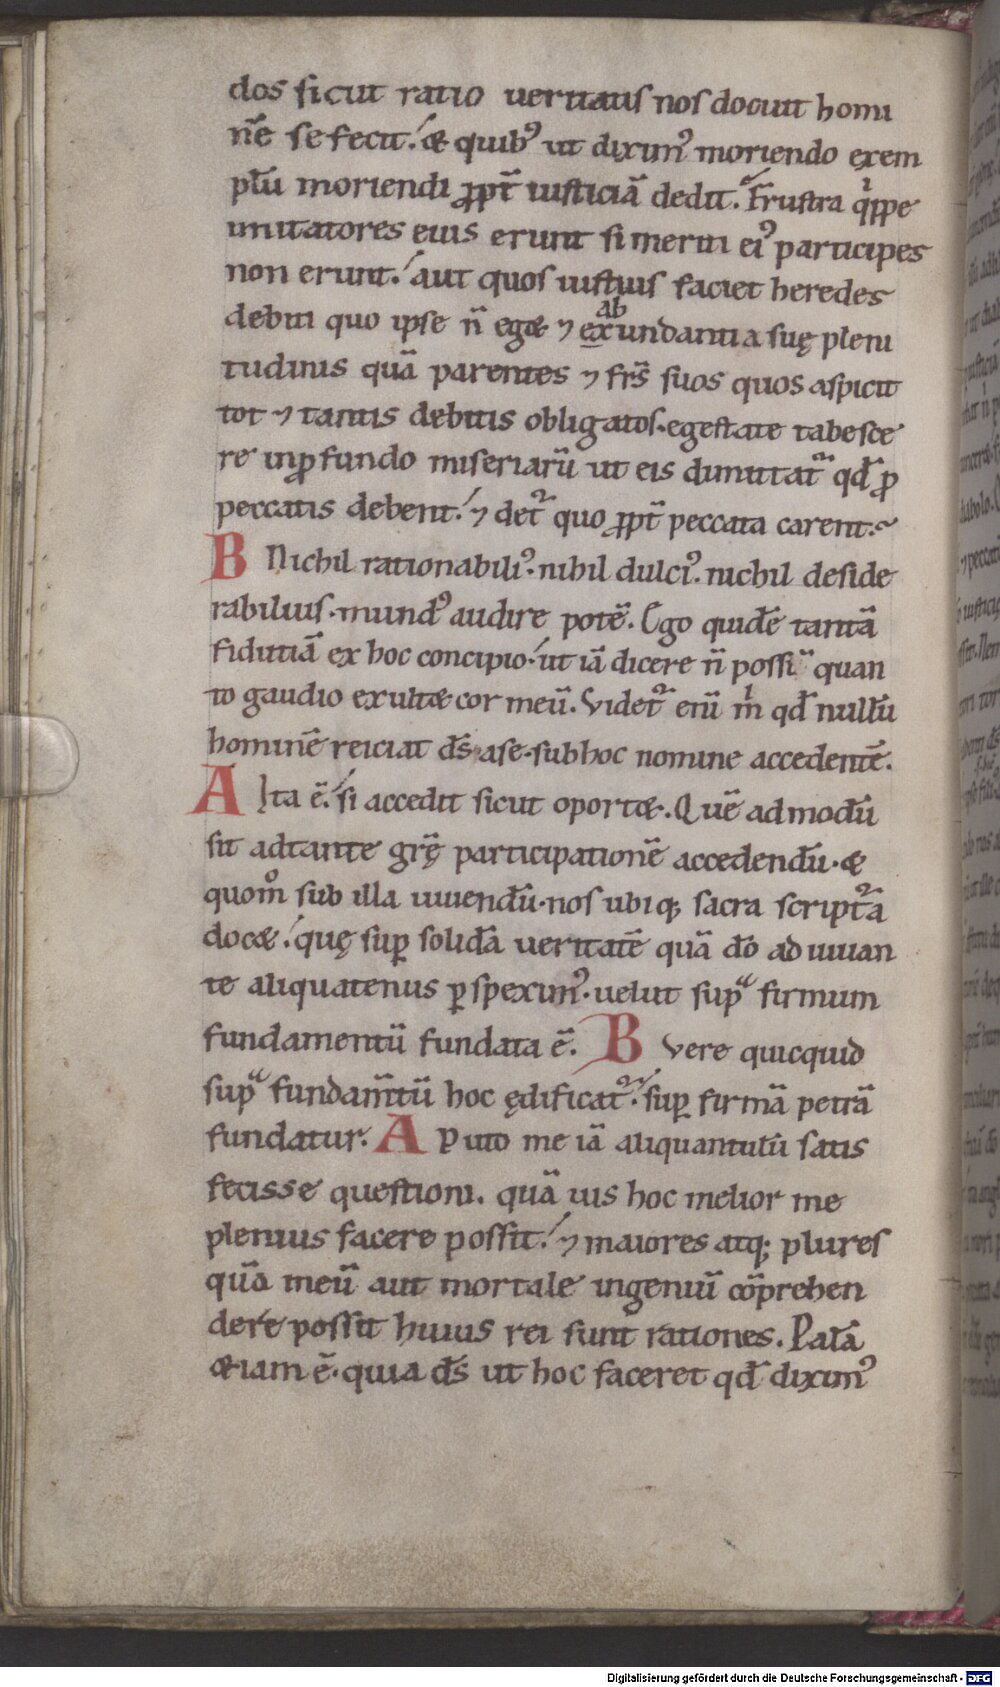 dos sicut ratio ueritatis nos docuit homi
nē se fecit. & quibꝰ ut diximꝰ moriendo exem
plū moriendi ꝓpt̄ iusticiā dedit. Frustra q̍ppe
imitatores eius erunt si meriti eiꝰ participes
non erunt. aut quos iustius faciet heredes
debiti quo ipse n̄ eg& ⁊ exundantia suę pleni
ab
tudinis quā parentes ⁊ fr̄s suos quos aspicit
tot ⁊ tantis debitis obligatos. egestate tabesce
re in ꝓfundo miseriarū ut eis dimittat᷑ qd̄ ꝓ
peccatis debent. ⁊ det᷑ quo ꝓpt̄ peccata carent.
B Nichil rationabiliꝰ. nihil dulciꝰ. nichil deside
rabilius. mundꝰ audire potē. Ego quidē tantā
fidutiā ex hoc concipio. ut iā dicere n̄ possiͫ quan
to gaudio exult& cor meū. Videt᷑ enī m̍ qd̄ nullū
hominē reiciat d̄s a se. sub hoc nomine accedentē.
A Ita ē. si accedit sicut oport&. Quē ad modū
sit ad tante gr̄ę participationē accedendū. &
quomͦ sub illa uiuendū. nos ubiq; sacra script᷑a
doc&. quę suꝑ solidā ueritatē quā dō adiuuan
te aliquatenus ꝑspeximꝰ. uelut supͣ firmum
fundamentū fundata ē. B Vere quicquid
supͣ fundam̄tū hoc ędificat᷑. suꝑ firmā petrā
fundatur. A Puto me iā aliquantulū satis
fecisse questioni. quāuis hoc melior me
plenius facere possit. ⁊ maiores atq; plures
quā meū aut mortale ingeniū cōprehen
dere possit huius rei sunt rationes. Palā
&iam ē. quia d̄s ut hoc faceret qd̄ diximꝰ
Digitalisierung gefördert durch die Deutsche Forschungsgemeinschaft - DFG